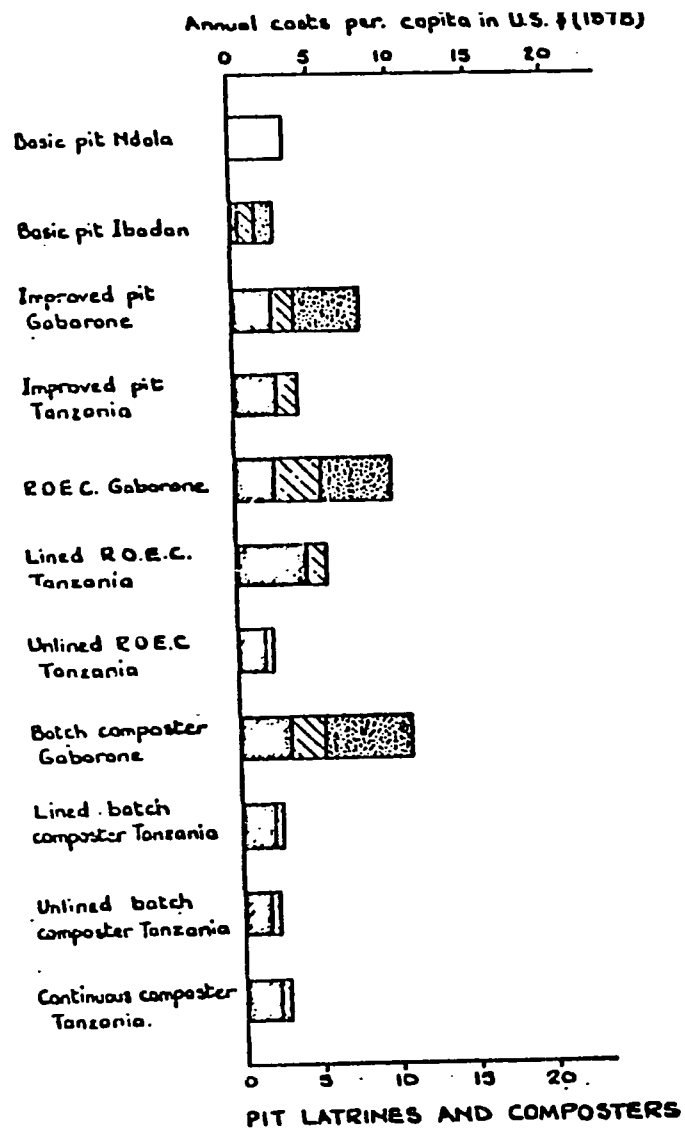 Annual costs per. capita in U.S. $ (1978)
0 5 10 15 20
Basic pit Ndola
Basic pit Ibadan
Improved pit
Gaborone
Improved pit
Tanzania
R O E C. Gaborone
Lined R O.E.C.
Tanzania
Unlined R O E.C
Tanzania
Batch composter
Gaborone
Lined batch
composter Tanzania
Unlined batch
composter Tanzania
Continuous composter
Tanzania.
0 5 10 15 20
PIT LATRINES AND COMPOSTERS